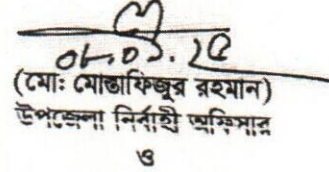 (মোঃ মোস্তাফিজুর রহমান)
উপজেলা নির্বাহী অফিসার
ও